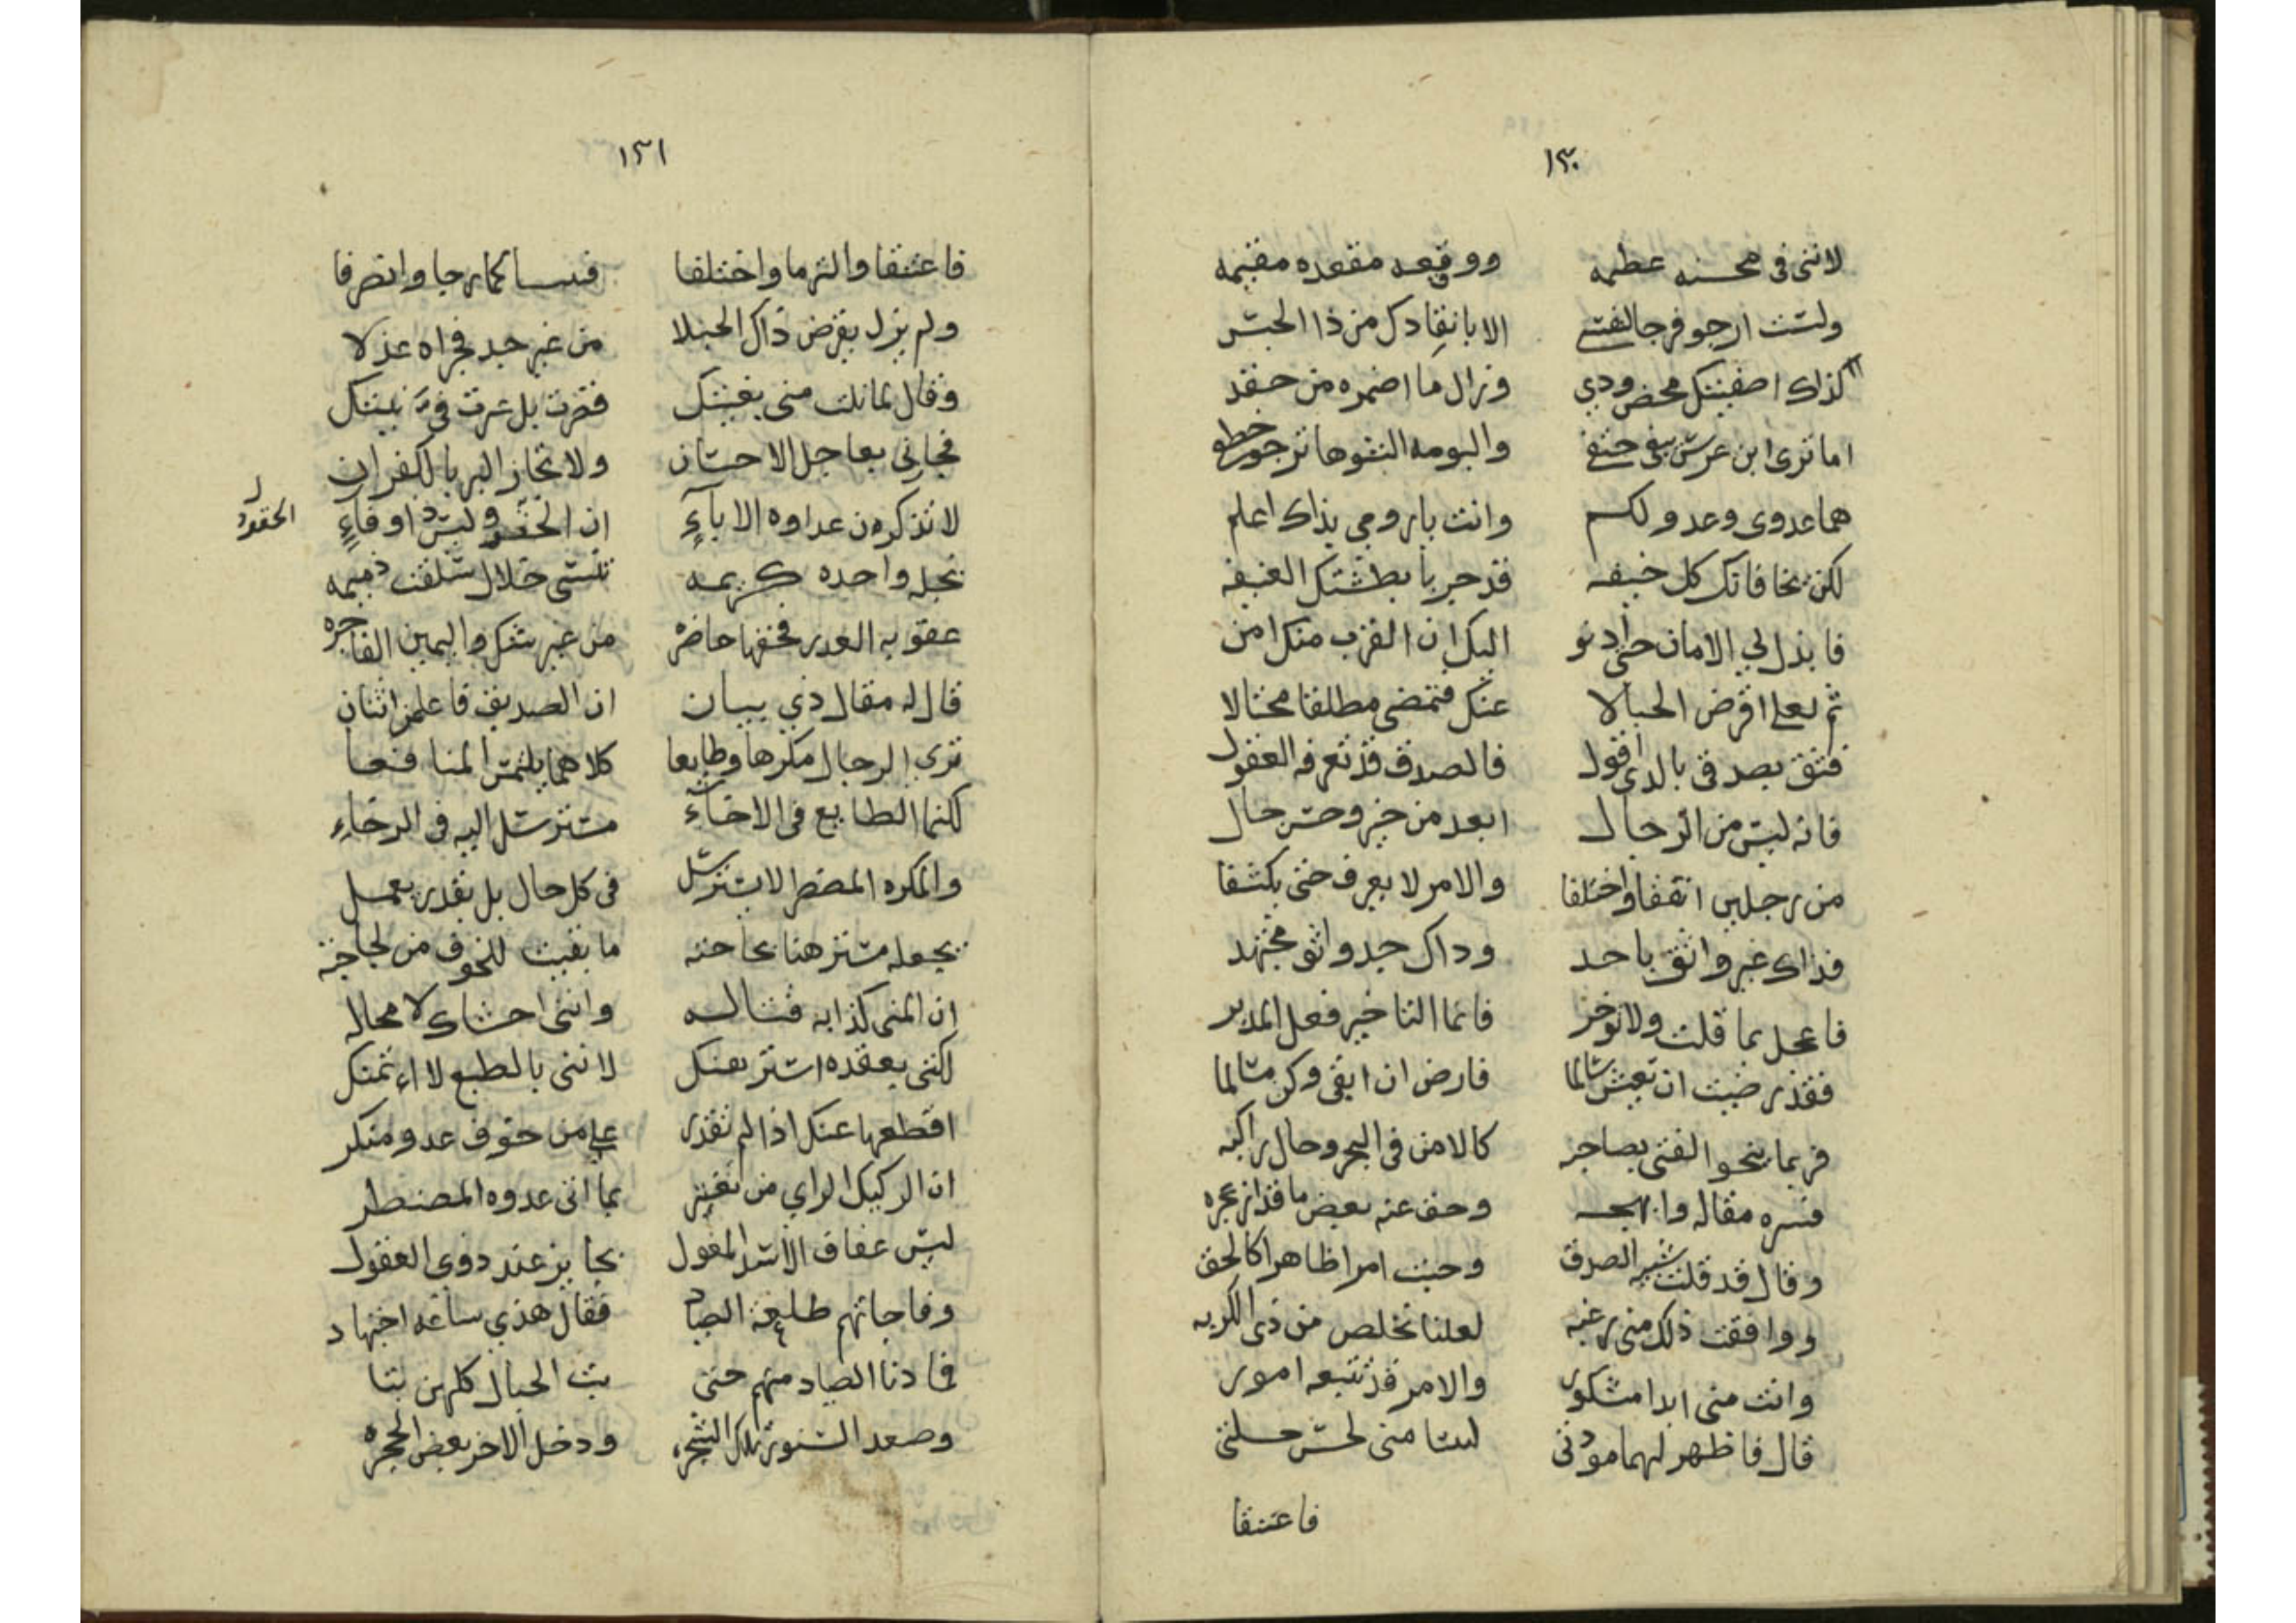 ١٣٠
لاننى فى محنه عظمه ووقعه مقعده مقيمه
ولست ارجو فرجا لنفسى الا بانقادك من ذا الحبس
كذاك اصفيتك محض ودي وزال ما اضمره من حقد
اما ترى ابن عرس يبغى حتفى والبومه التى ترجو خطفى
هما عدوى وعدو لكم وانت يا رومي بذاك اعلم
لكن مخافاتك كل خيفه قد جربا بطشتك العنيفه
فابذل لي الامان حتى ادنو اليك ان القرب منك امن
ثم لعلى اقرض الحبالا عنك فتمضى مطلقا محتالا
فثق بصدقى بالدى اقول فالصدق قد تعرفه العقول
فانه ليس من الرجال ابعد من خير وحسن حال
من رجلين اتفقا واختلفا والامر لا يعرف حتى يكشفا
فذاك غير واثق باحد وداك جد واثق مجتهد
فاعجل بما قلت ولا توخر فانما التاخير فعل المدبر
فقد رضيت ان تعيش سالما فارض ان ابقى وكن مسالما
فربما ينجو الفتى بصاحبه كالامن فى البحر وحال راكبه
فسره مقاله وابهجه وخف عنه بعض ما قد ازعجه
وقال قد قلت شبيه الصدق وجيت امرا ظاهرا كالحق
ووافقت ذلك منى رغبه لعلنا نخلص من ذى الكربه
وانت منى ابدا مشكور والامر قد تتبعه امور
قال فاظهر لهما مودتى ليسا منى لحسن حيلتى
فاعتنقا
١٣١
فاعتنقا والتزما واختلفا فيسا كما رجا وانصرفا
ولم يزل يقرض ذاك الحبلا من غير جد فجزاه عذلا
وقال لما نلت منى بغيتك فترت بل غيرت فيّ نيتك
فجازنى بعاجل الاحسان ولا تجاز البر بالكفران
لا تذكرن عداوه الاباءِ ان الحقود ليس ذا وفاءِ
الحقود
بخله واحده كريمه تنسى خلال سلفت ذميمه
عقوبه الغدر فخفها حاضره من غير شك واليمين الفاجره
قال له مقال ذي بيان ان الصديق فاعلمن اثنان
ترى الرجال مكرها وطايعا كلاهما يلتمس المنافعا
لكنما الطايع فى الاخاءِ مسترسل اليه فى الرخاءِ
والمكره المضطر لا يسترسل فى كل حال بل بقدر يعمل
يجعله مسترهنا بحاجته ما بقيت للخوف من لجاجته
ان المنى كذابه قتاله واننى اخشاك لا محاله
لكننى بعقده استر بعنك لاننى بالطبع لا اءتمنك
اقطعها عنك اذا لم تقدر على من خوف عدو منكر
ان الركيك الراي من يغتر بما اتى عدوه المضطر
ليس عفاف الاسد المغول بجايز عند ذوى العقول
وفاجاتهم طلعة الصياد فقال هذي ساعه اجتهاد
فما دنا الصياد منهم حتى بت الحبال كلهن بتا
وصعد السنور تلك الشجره ودخل الاخر بعض الجحره